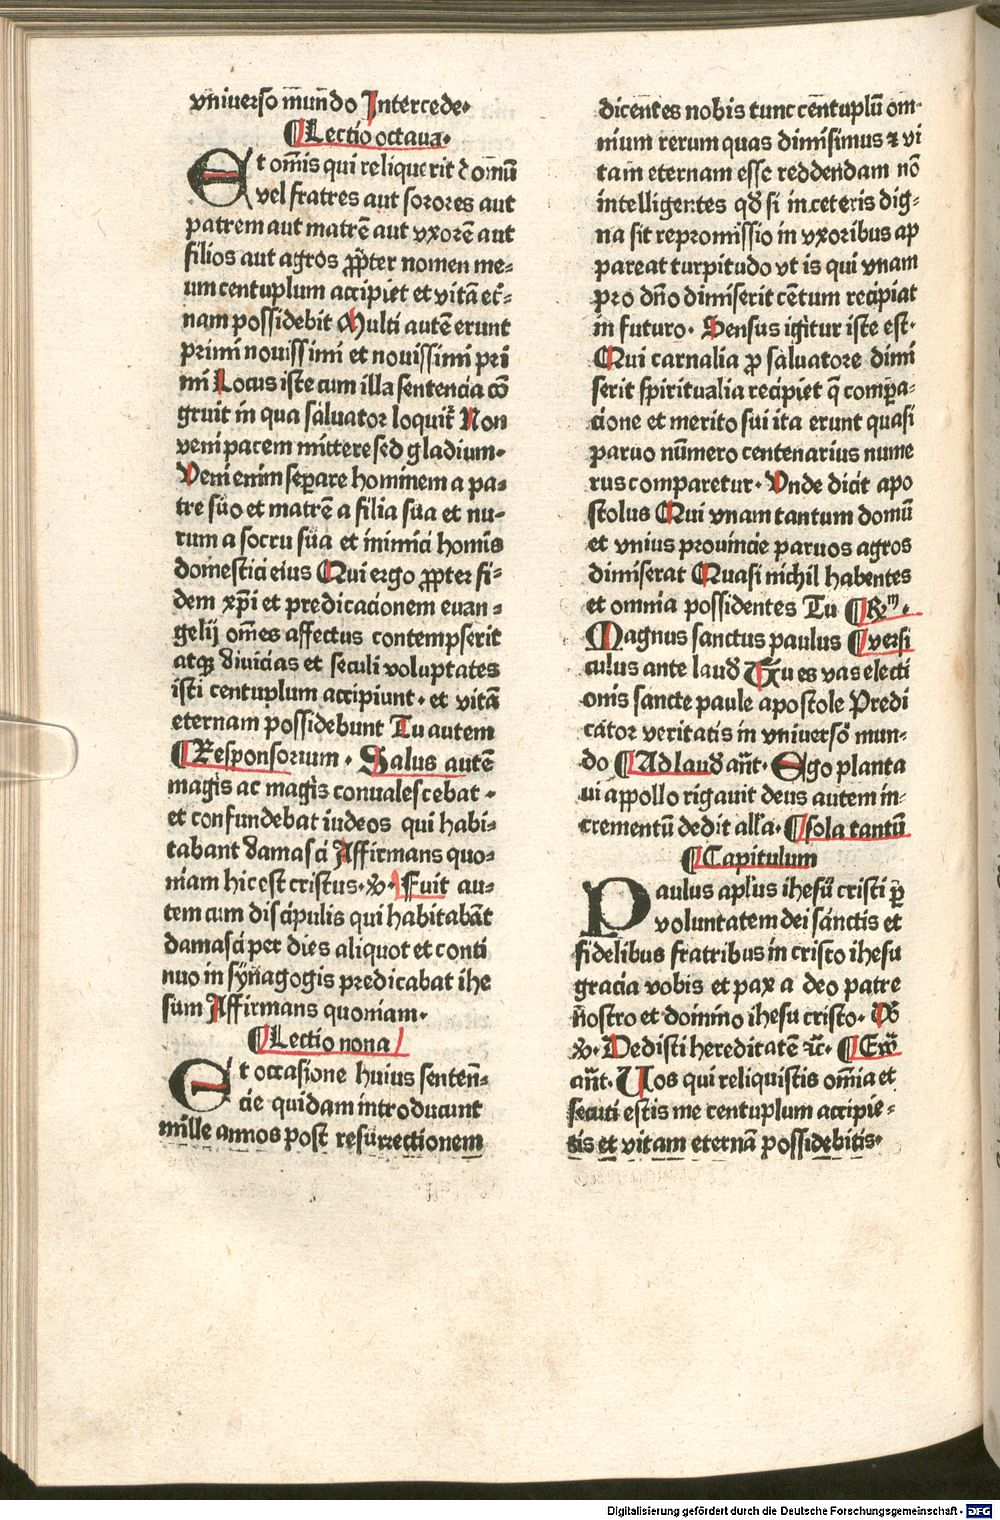 vniuerso mundo Intercede.
¶Lectio octaua.
Et om̄is qui reliquerit domū
vel fratres aut sorores aut
patrem aut matrē aut vxorē aut
filios aut agros ꝓp̄ter nomen me⸗
um centuplum accipiet et vitā et̄⸗
nam possidebit Multi autē erunt
primi nouissimi et nouissimi pri
mi Locus iste cum illa sentencia cō
gruit in qua saluator loquit̄ Non
veni pacem mittere sed gladium.
Veni enim seꝑare hominem a pa⸗
tre suo et matrē a filia sua et nu⸗
rum a socru sua et inimici homīs
domestici eius Qui ergo ꝓp̄ter fi⸗
dem xp̄i et predicacionem euan⸗
gelij om̄es affectus contempserit
atqꝫ diuicias et seculi voluptates
isti centuplum accipiunt. et vitā
eternam possidebunt Tu autem
¶Responsorium. Salus autē
magis ac magis conualescebat.
et confundebat iudeos qui habi⸗
tabant damasci Affirmans quo⸗
niam hic est cristus. ꝟ. Fuit au⸗
tem cum discipulis qui habitabāt
damasci per dies aliquot et conti
nuo in synagogis predicabat ihe
sum Affirmans quoniam.
¶Lectio nona
Et occasione huius senten̄⸗
cie quidam introducunt
mille annos post resurrectionem
dicentes nobis tunc centuplū om⸗
nium rerum quas dimisimus ⁊ vi
tam eternam esse reddendam nō
intelligentes qd̄ si in ceteris dig⸗
na sit repromissio in vxoribus ap
pareat turpitudo vt is qui vnam
pro dn̄o dimiserit cētum recipiat
in futuro. Sensus igitur iste est.
Qui carnalia ꝓ saluatore dimi
serit spiritualia recipiet q̄ comꝑa⸗
cione et merito sui ita erunt quasi
paruo nūmero centenarius nume
rus comparetur. Vnde dicit apo
stolus Qui vnam tantum domū
et vnius prouincie paruos agros
dimiserat Quasi nichil habentes
et omnia possidentes Tu ¶℞ᵐ.
Magnus sanctus paulus ¶versi
culus ante laud̄ Tu es vas electi
onis sancte paule apostole Predi
cator veritatis in vniuerso mun⸗
do ¶Ad laud̄ an̄t. Ego planta
ui appollo rigauit deus autem in⸗
crementū dedit all̄a. ¶sola tantū
¶Capitulum
Paulus apl̄us ihesū cristi ꝑ
voluntatem dei sanctis et
fidelibus fratribus in cristo ihesu
gracia vobis et pax a deo patre
nostro et domino ihesu cristo. D̄
ꝟ. Dedisti hereditatē ⁊c̄. ¶Ew̄
an̄t. Uos qui reliquistis om̄ia et
secuti estis me centuplum accipie⸗
tis et vitam eternā possidebitis.
Digitalisierung gefördert durch die Deutsche Forschungsgemeinschaft - DFG